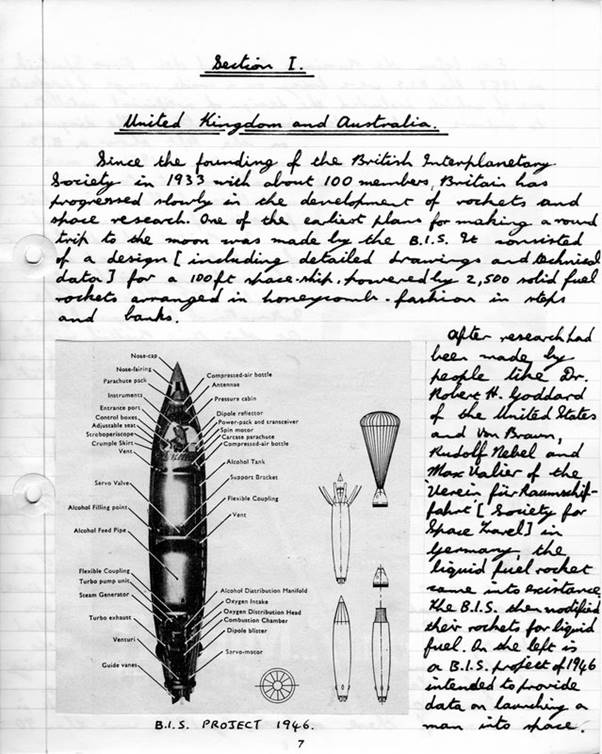 Section I.
United Kingdom and Australia.
Since the founding of the British Interplanetary
Society in 1933 with about 100 members, Britain has
progressed slowly in the development of rockets and
space research. One of the earliest plans for making a round
trip to the moon was made by the B.I.S. It consisted
of a design [including detailed drawings and technical
data] for a 100ft space-ship, powered by 2,500 solid fuel
rockets arranged in honeycomb-fashion in steps
and banks.
After research had
been made by
people like Dr.
Robert H. Goddard
of the United States
and Von Braun,
Rudolf Nebel and
Max Valier of the
Verein für Raumschif-
fahrt [Society for
Space Travel] in
Germany, the
liquid fuel rocket
came into existance
the B.I.S. then modified
their rockets for liquid
fuel. On the left is
a B.I.S. project of 1946
intended to provide
data on launching a
man into space.
Nose-cap
Nose-fairing
Parachute pack
Instruments
Entrance port
Control boxes
Adjustable seat
Stroboperiscope
Crumple Skirt
Vent
Servo Valve
Alcohol Filling point
Alcohol Feed Pipe
Flexible Coupling
Turbo pump unit
Steam Generator
Turbo exhaust
Venturi
Guide vanes
Compressed-air bottle
Antennae
Pressure cabin
Dipole reflector
Power-pack and transceiver
Spin motor
Carcase parachute
Compressed-air bottle
Alcohol Tank
Support Bracket
Flexible Coupling
Vent
Alcohol Distribution Manifold
Oxygen Intake
Oxygen Distribution Head
Combustion Chamber
Dipole blister
Servo-motor
B.I.S. PROJECT 1946.
7